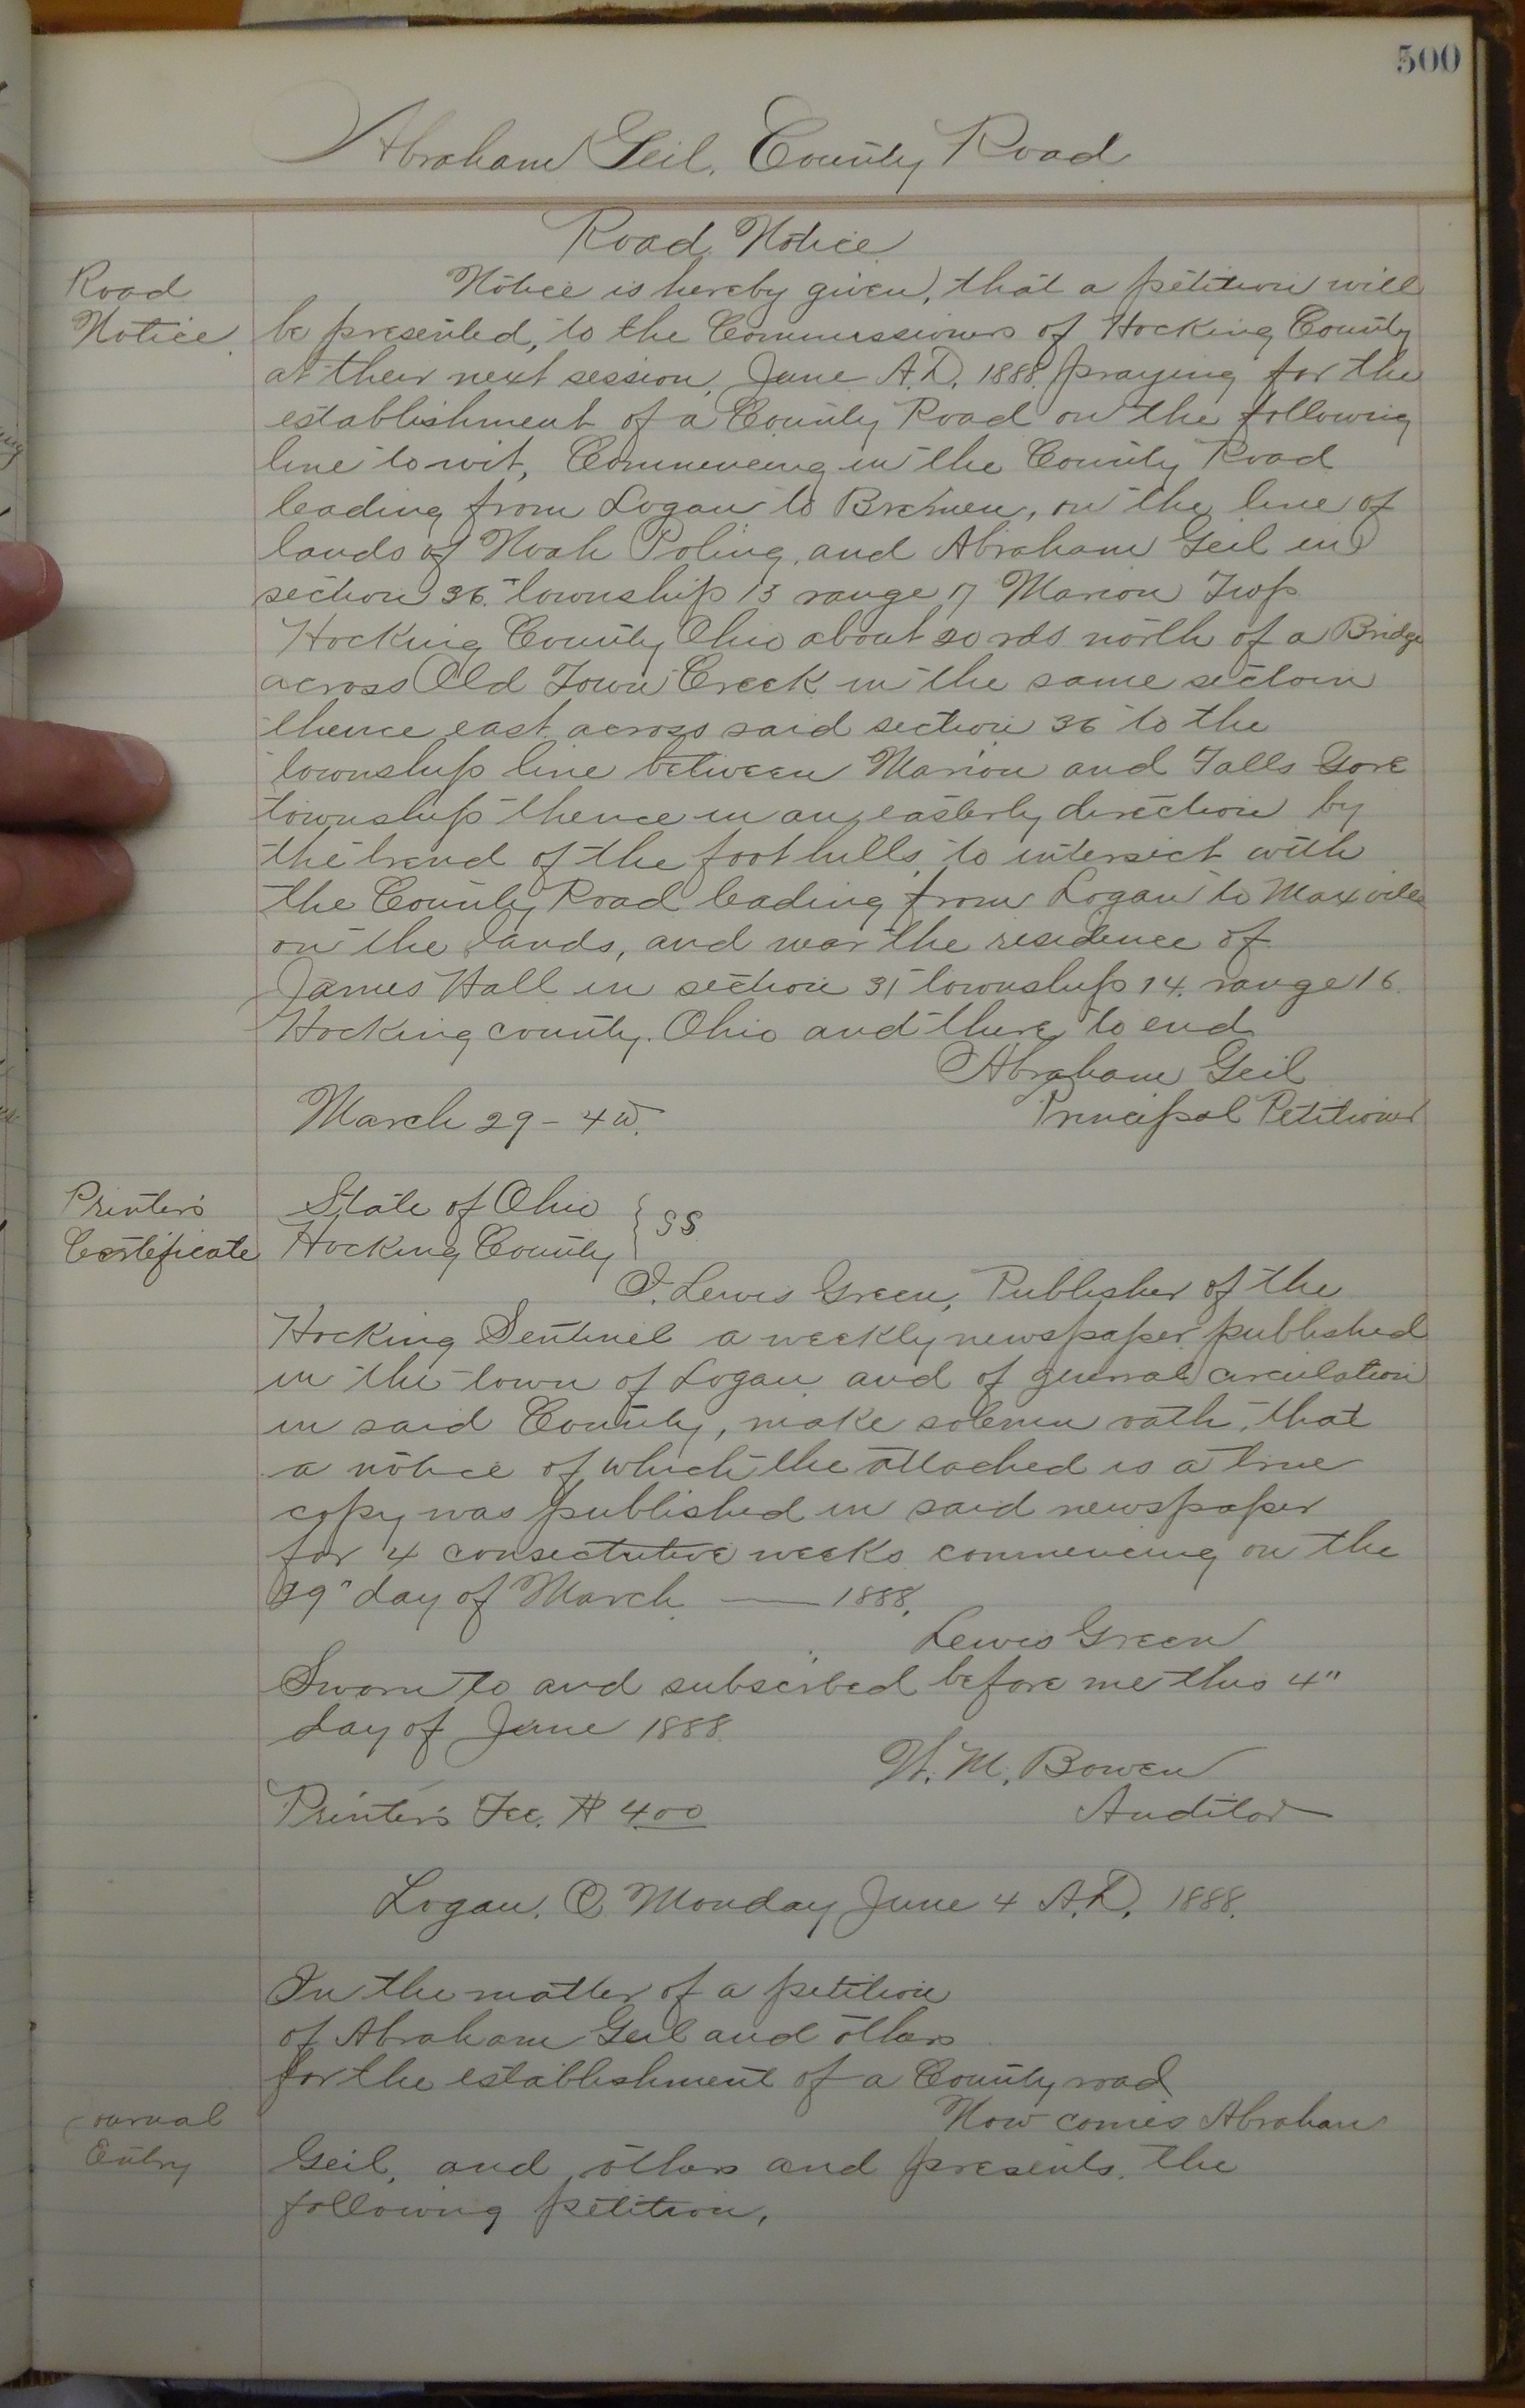 500
Abraham Geil, County Road
Road Notice
Road
Notice
Notice is hereby given, that a petition will
be presented, to the Commissioners of Hocking County
at their next session, June A.D. 1888, praying for the
establishment of a County Road on the following
line to wit, Commencing in the County Road
leading from Logan to Bremen, on the line of
lands of Noah Poling, and Abraham Geil in
section 36. township 15 range 17 Marion Twp
Hocking County Ohio about 20 rds north of a Bridge
across Old Town Creek in the same section
thence east across said section 36 to the
township line between Marion and Falls Gore
township thence in an easterly direction by
the trend of the foot hills, to intersect with
the County Road leading from Logan to Maxville
on the lands, and near the residence of
James Hall in section 31 township 14. range 16.
Hocking county. Ohio and there to end
Abraham Geil
March 29 - 4w. Principal Petitioner
Printer's
Certificate
State of Ohio
Hocking County } SS
I. Lewis Green, Publisher of the
Hocking Sentinel a weekly newspaper published
in the town of Logan and of general circulation
in said County, make solemn oath, that
a notice of which the attached is a true
copy was published in said newspaper
for 4 consectutive weeks commencing on the
29" day of March — 1888.
Lewis Green
Sworn to and subscribed before me this 4"
day of June 1888
W. M. Bowen
Printer's Fee. $ 4.00 Auditor
Logan, O. Monday June 4 A.D. 1888.
In the matter of a petition
of Abraham Geil and others
for the establishment of a County road
Journal
Entry
Now comes Abraham
Geil, and others and presents the
following petition,